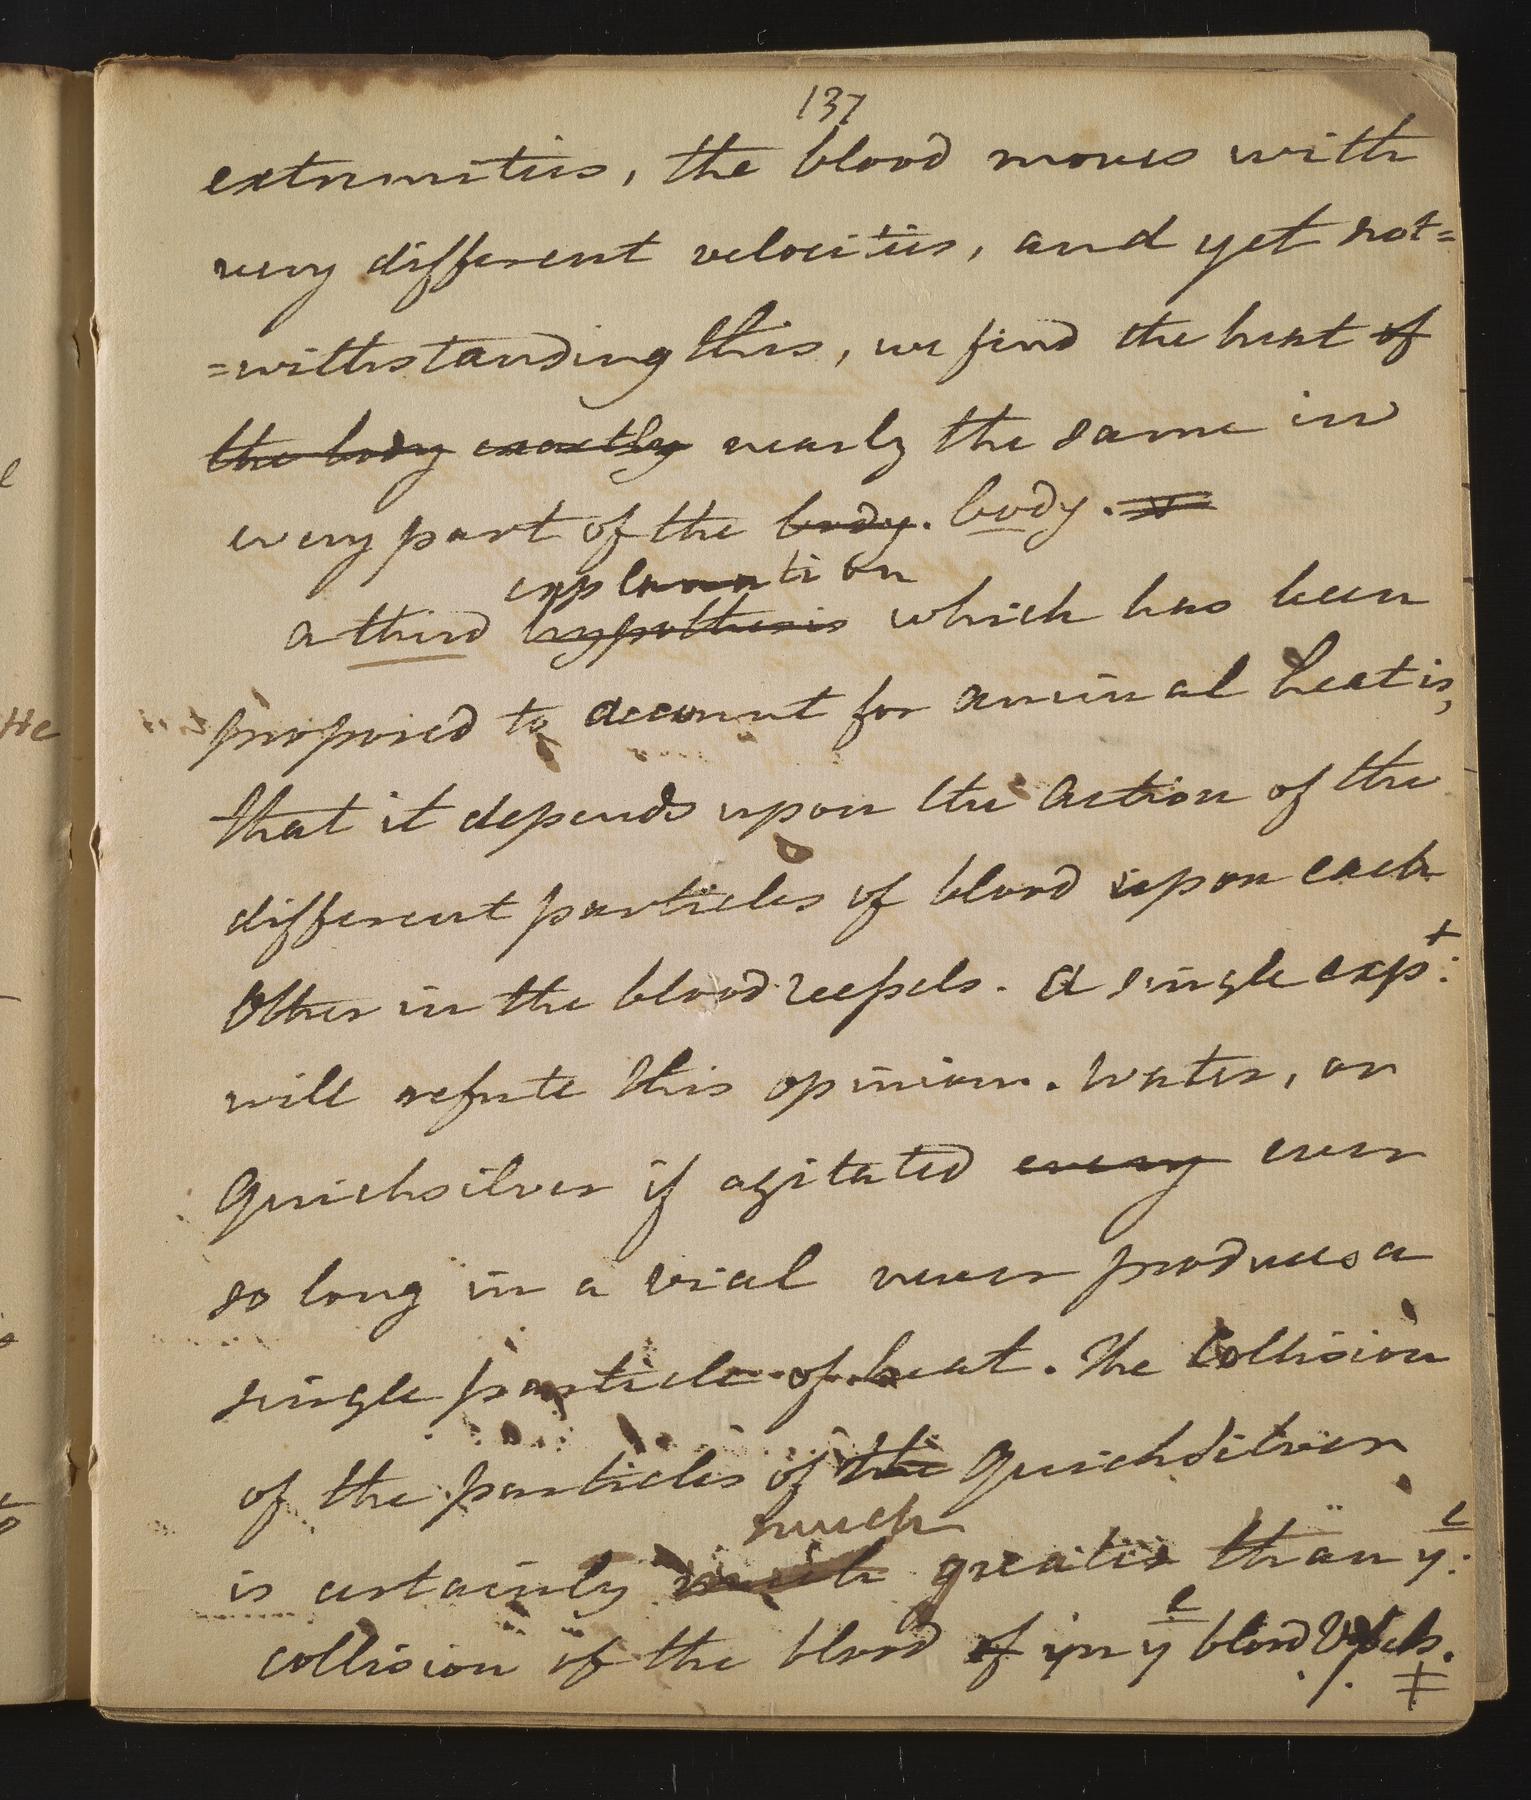 137
extremities, the blood moves with
very different velocities, and yet not=
=withstanding this, we find the heat of
the body exactly nearly the same in
every part of the body. body.
explanation
a third hypothesis which has been
proposed to account for animal heat is,
that it depends upon the Action of the
different particles of blood upon each
Other in the blood vessels. A single exp.t
will refute this opinion. Water, or
Quicksilver if agitated every ever
so long in a vial never produces a
single particle of heat. The Collision
of the particles of the Quicksilver
much
is certainly much greater than y.e
collision of the blood of in y.e blood Vessels.
‡